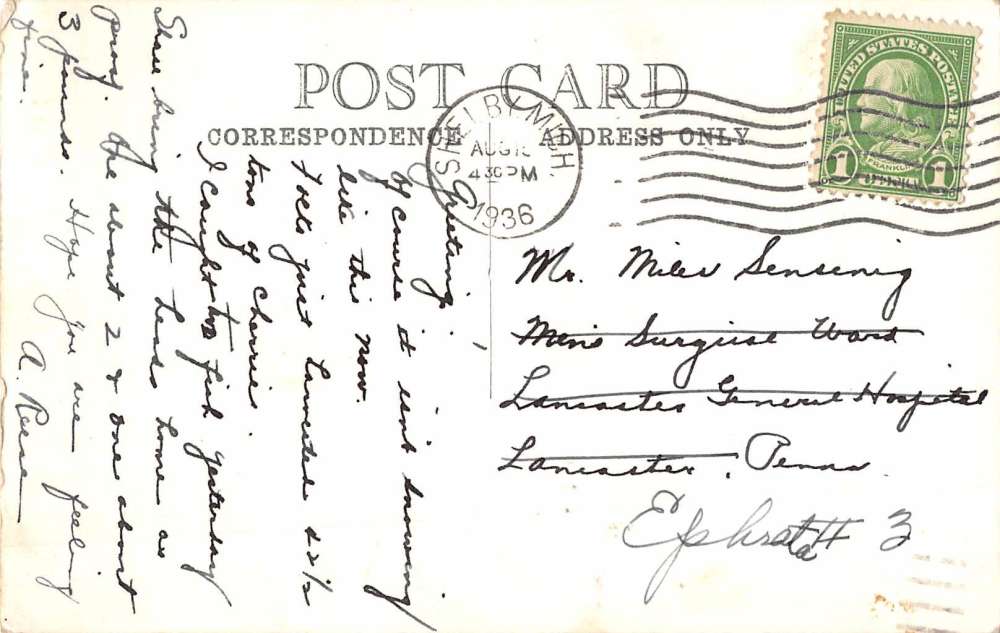 POST CARD
CORRESPONDENCE
ADDRESS ONLY
SHELBY MICH.
AUG
4 30 PM
1936
UNITED STATES POSTAGE
FRANKLIN
1 1
Greetings:
Of course it isn't snowing
like this now.
Folks just harvested 42 1/2
tons of cherries.
I caught two fish yesterday
Shall bring the heads home as
proof. One about 2 & one about
3 pounds. Hope you are feeling
fine.
A. Reese
Mr. Miles Sensenig
Mens Surgical Ward
Lancaster General Hospital
Lancaster, Penna
Ephrata # 3